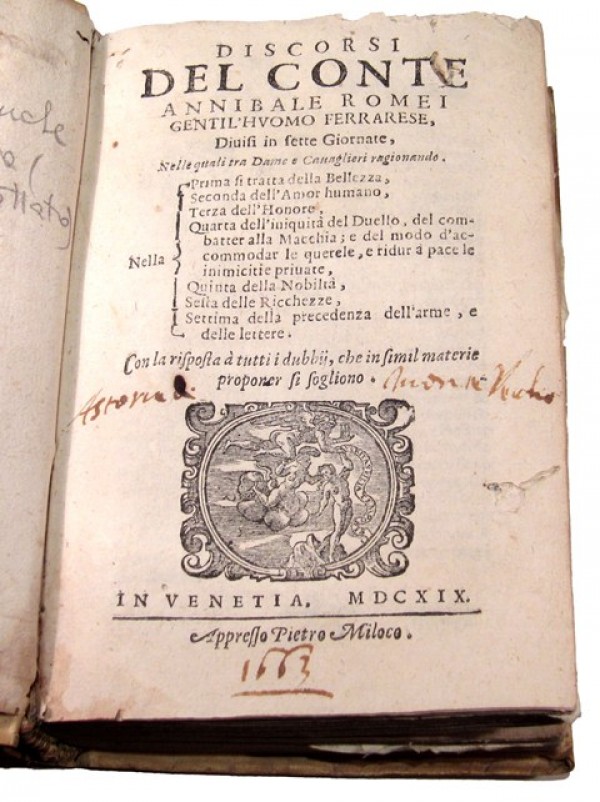 DISCORSI
DEL CONTE
ANNIBALE ROMEI
GENTIL'HVOMO FERRARESE,
Diuisi in sette Giornate,
Nelle quali tra Dame e Cauaglieri ragionando.
Nella
Prima si tratta della Bellezza,
Seconda dell'Amor humano,
Terza dell'Honore,
Quarta dell'iniquità del Duello, del com-
batter alla Macchia; e del modo d'ac-
commodar le querele, e ridur à pace le
inimicitie priuate,
Quinta della Nobiltà,
Sesta delle Ricchezze,
Settima della precedenza dell'arme, e
delle lettere.
Con la risposta à tutti i dubbij, che in simil materie
proponer si sogliono.
IN VENETIA, MDCXIX.
Appresso Pietro Miloco.
1663